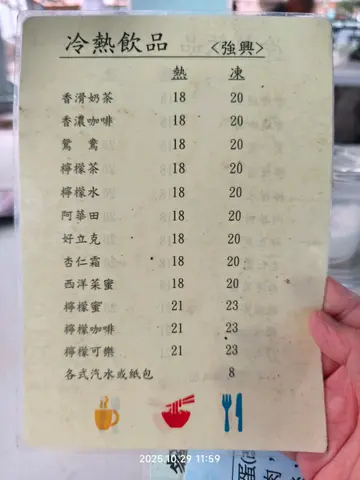 冷熱飲品 <強興>
熱 凍
香滑奶茶 18 20
香濃咖啡 18 20
鴛鴦 18 20
檸檬茶 18 20
檸檬水 18 20
阿華田 18 20
好立克 18 20
杏仁霜 18 20
西洋菜蜜 18 20
檸檬蜜 21 23
檸檬咖啡 21 23
檸檬可樂 21 23
各式汽水或紙包 8
2025.10.29 11:59